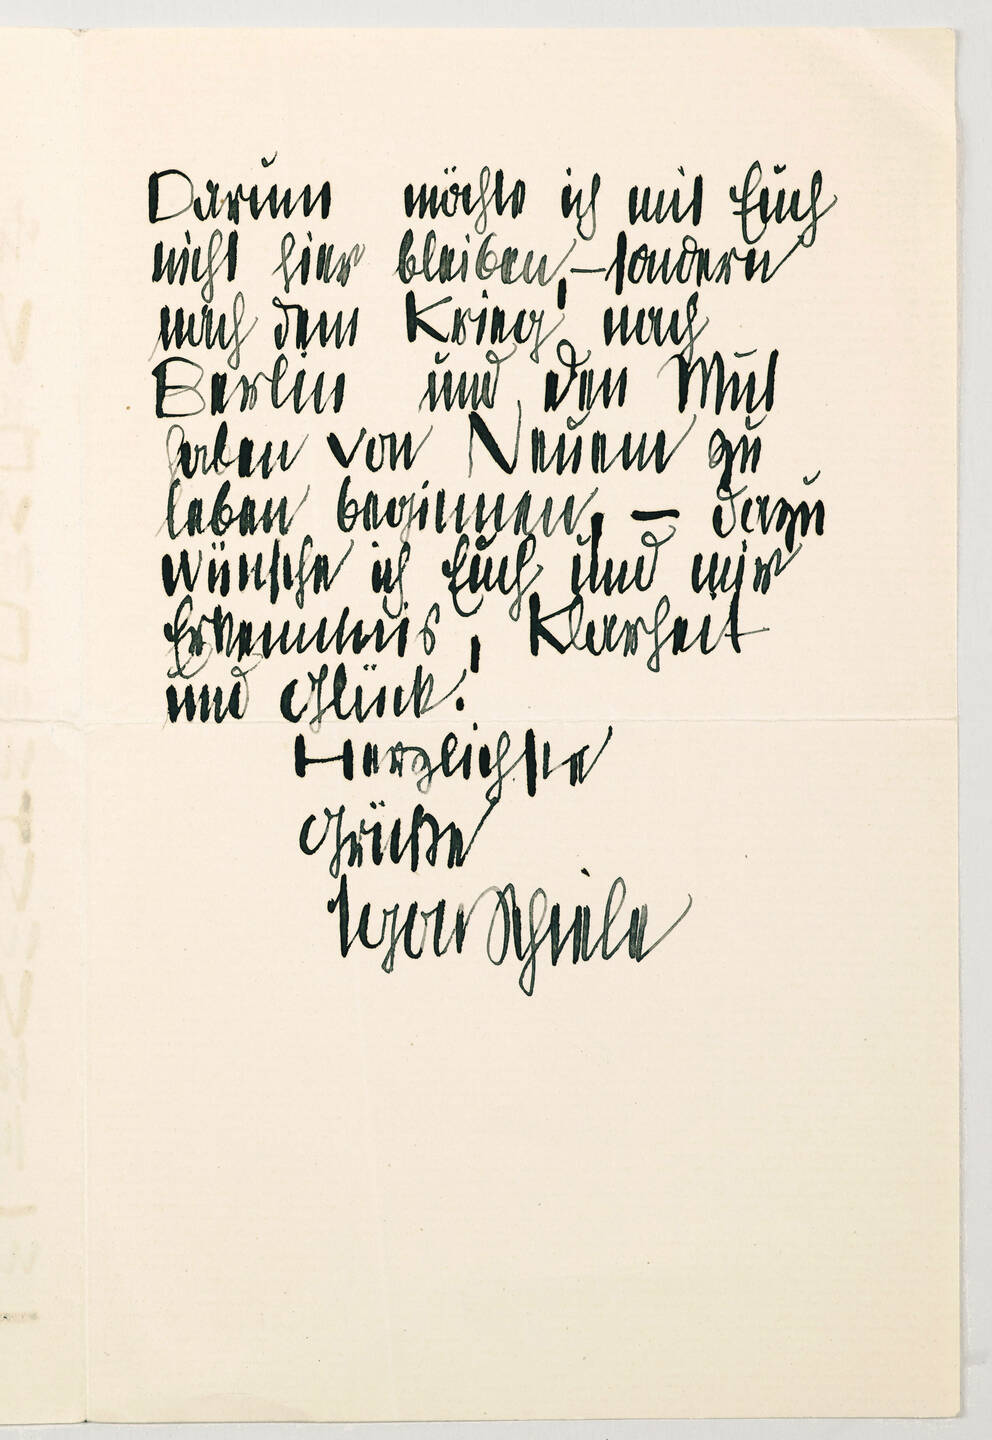 Darum möchte ich mit Euch
nicht hier bleiben, – sondern
nach dem Krieg nach
Berlin und den Mut
haben von Neuem zu
leben beginnen, – dazu
wünsche ich Euch und mir
Erkenntnis, Klarheit
und Glück.
Herzlichste
Grüße
Egon Schiele